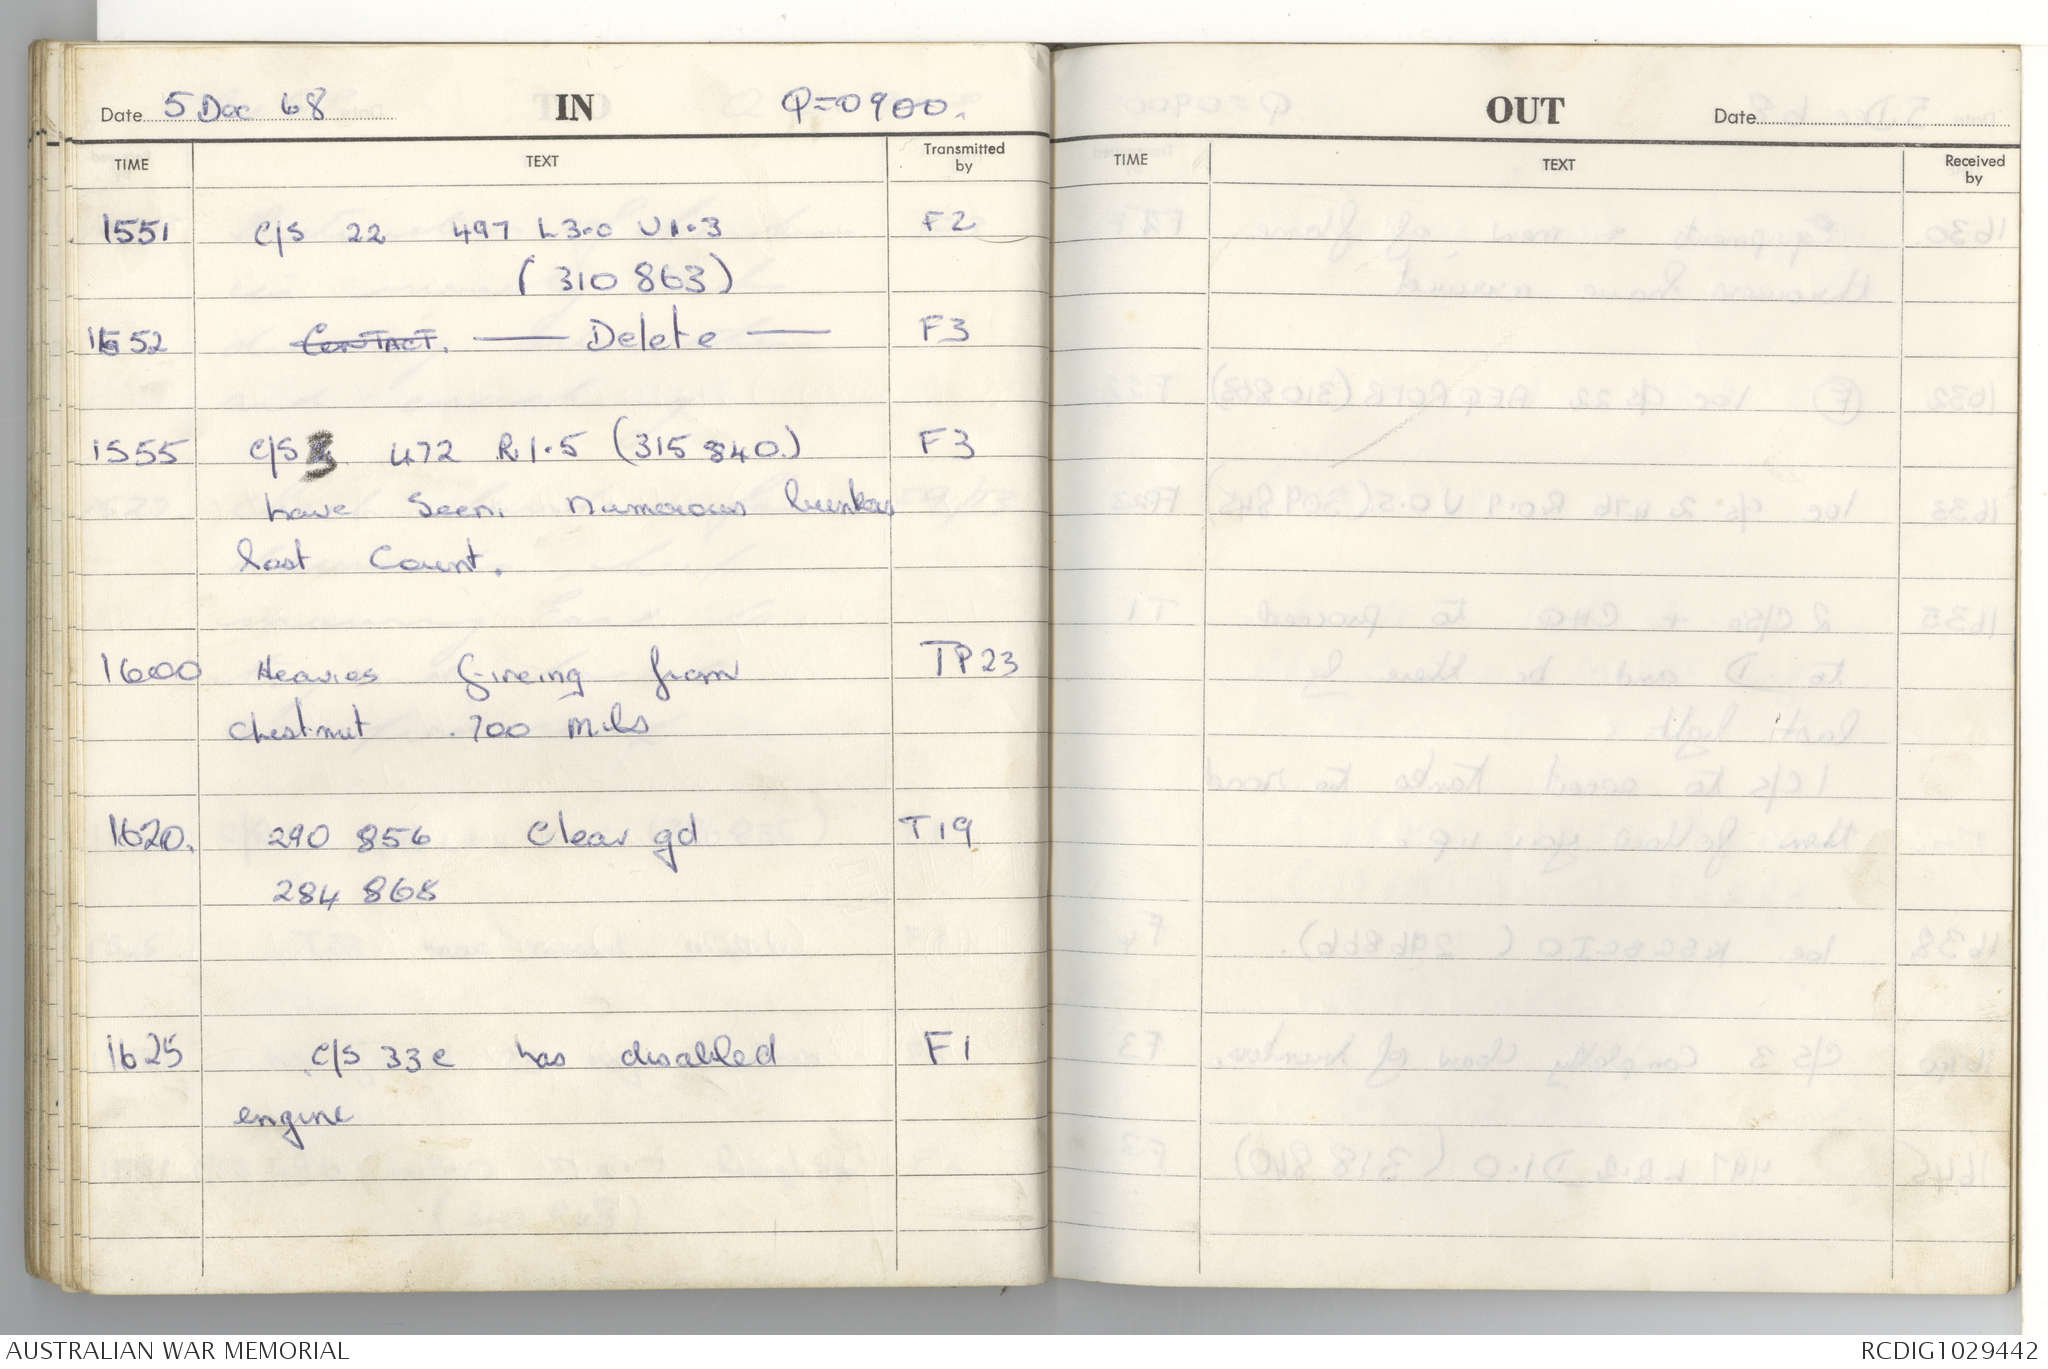 Date 5 Dec 68 IN Q=0900.
TIME TEXT Transmitted by
1551 C/S 22 497 L3.0 U1.3 F2
(310 863)
1552 Contact. — Delete — F3
1555 C/S 3 472 R1.5 (315 840.) F3
have seen numerous bunkers
last count.
1600 Heavies fireing from TP23
chestnut .700 mils
1620. 290 856 Clear gd T19
284 868
1625 C/S 33c has disabled F1
engine
OUT Date
TIME TEXT Received by
AUSTRALIAN WAR MEMORIAL RCDIG1029442